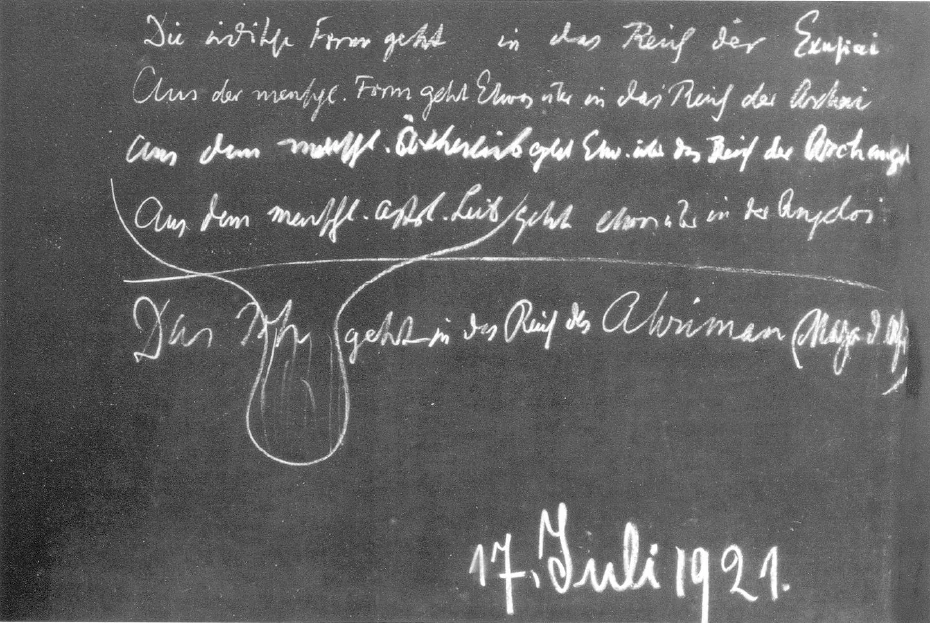 Die irdische Form geht in das Reich der Exusiai
Aus der menschl. Form geht Etwas über in das Reich der Archai
Aus dem menschl. Ätherleib geht Etw. über das Reich der Archangel
Aus dem menschl. astl. Leib geht etwas über in der Angeloi
Das Ich geht in das Reich des Ahriman (Maja d
17. Juli 1921.